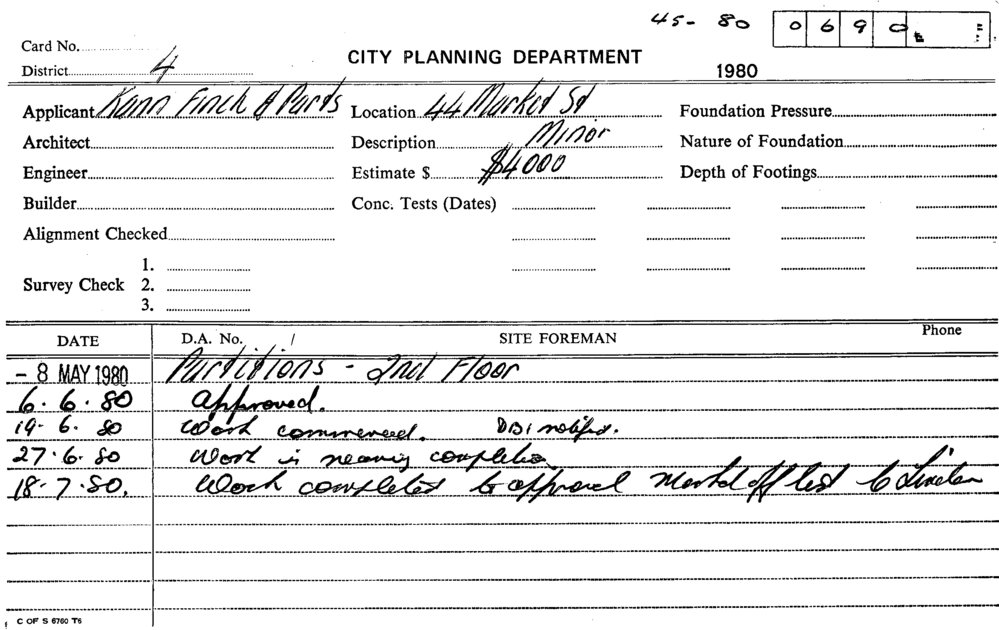 45- 80 0690
Card No.
District 4
CITY PLANNING DEPARTMENT
1980
Applicant Kann Finch & Parts Location 44 Market St Foundation Pressure
Architect Description Minor Nature of Foundation
Engineer Estimate $ $4000 Depth of Footings
Builder Conc. Tests (Dates)
Alignment Checked
1.
Survey Check 2.
3.
DATE D.A. No. SITE FOREMAN Phone
- 8 MAY 1980 Partitions - 2nd Floor
6. 6. 80 Approved.
19. 6. 80 Work commenced. DBI notified.
27.6.80 Work is nearing completion
18.7.80. Work completed to approval
C OF S 6760 T6